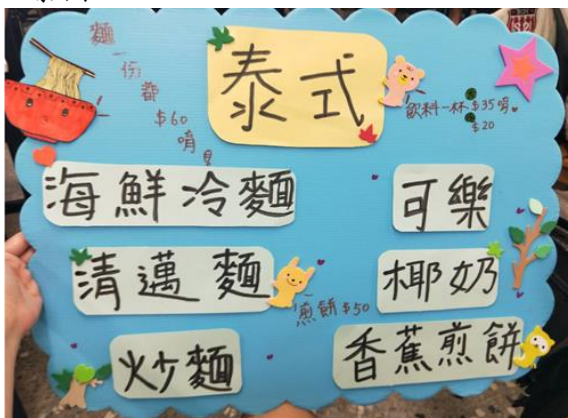 麵
一
份
都
$60
唷
泰式
飲料一杯 $35唷
$20
海鮮冷麵
可樂
清邁麵
椰奶
煎餅$50
炒麵
香蕉煎餅